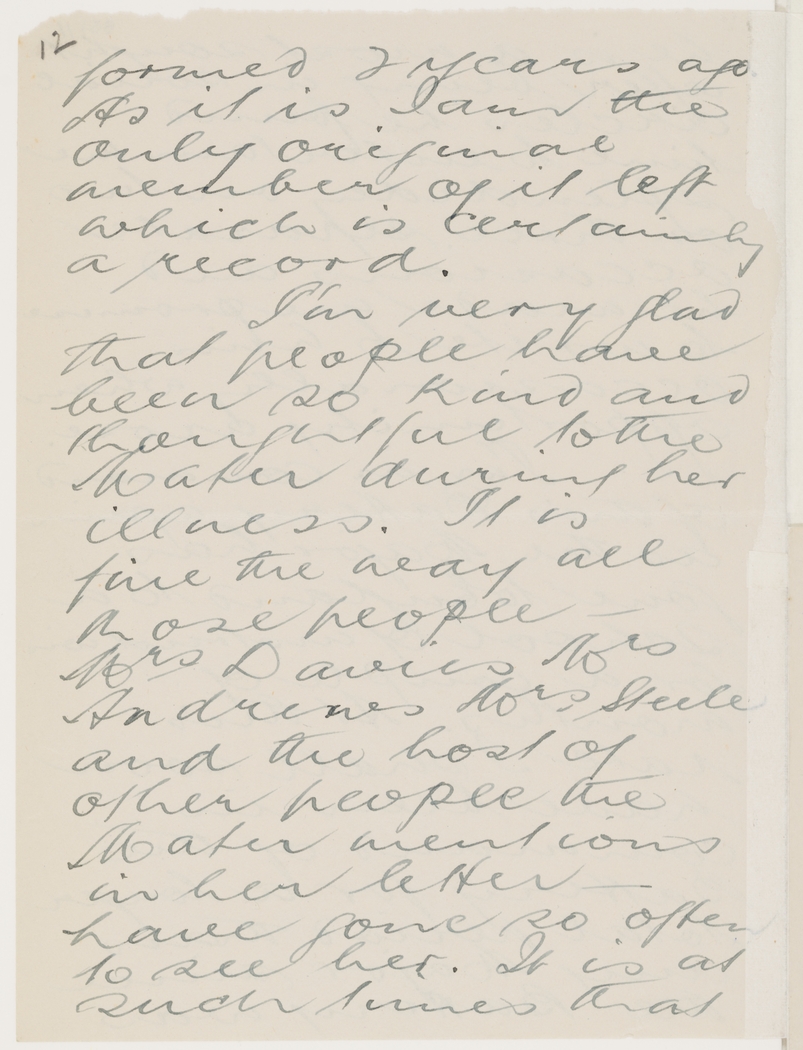 12
formed 2 years ago
As it is I am the
only original
member of it left
which is certainly
a record.
I'm very glad
that people have
been so kind and
thoughtful to the
Mater during her
illness. It is
fine the way all
those people —
Mrs Davies Mrs
Andrewes Mrs Steele
and the host of
other people the
Mater mentions
in her letter —
have gone so often
to see her. It is at
such times that